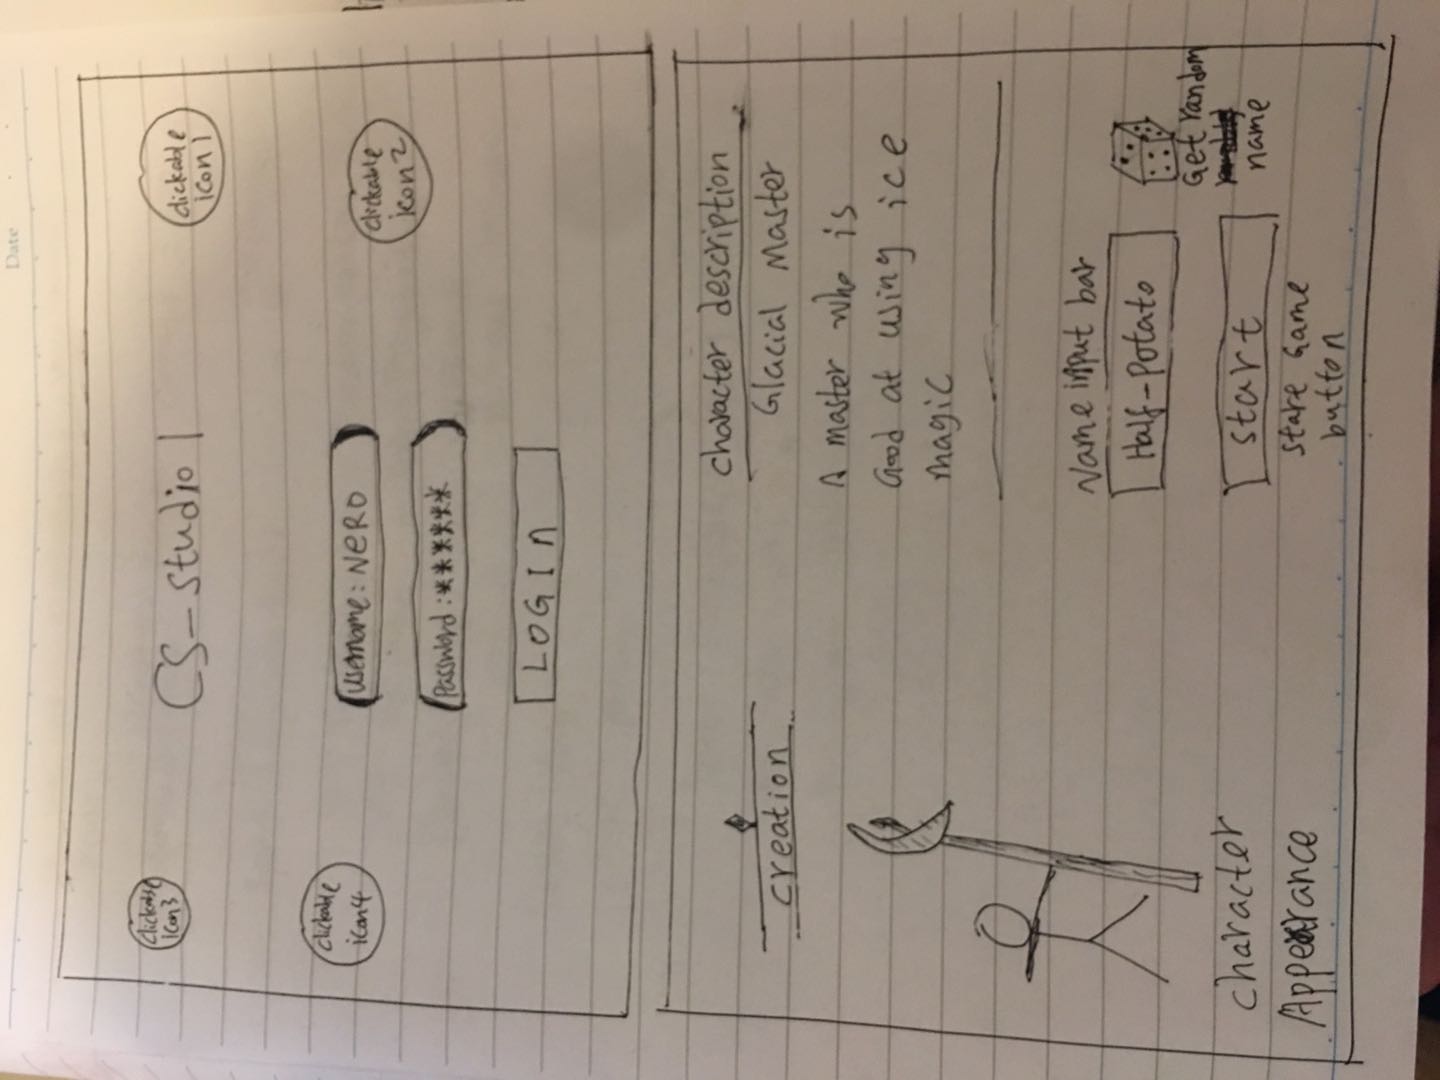 Date
clickable
icon3
CS-studio1
clickable
icon1
clickable
icon4
username: NERO
clickable
icon2
Password: ******
LOGIn
creation
character description
Glacial Master
A master who is
Good at using ice
magic
Name input bar
Half-potato
Get random
name
start
start Game
button
character
Appearance